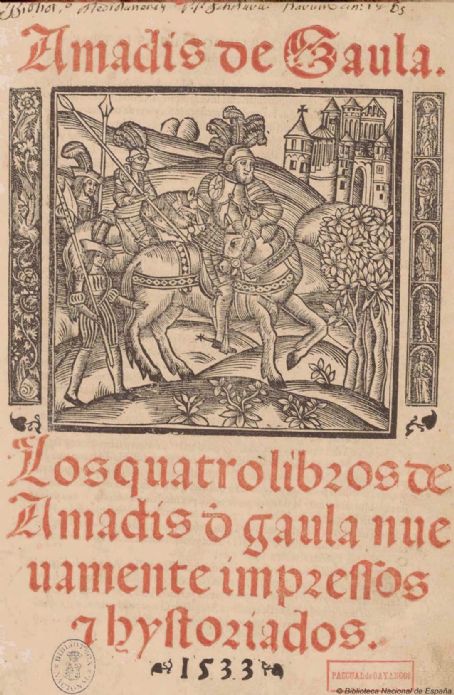 Amadis de Gaula.
Los quatro libros de
Amadis đ gaula nue
uamente impressos
⁊ hystoriados.
1533
PASCUAL de GAYANGOS
© Biblioteca Nacional de España